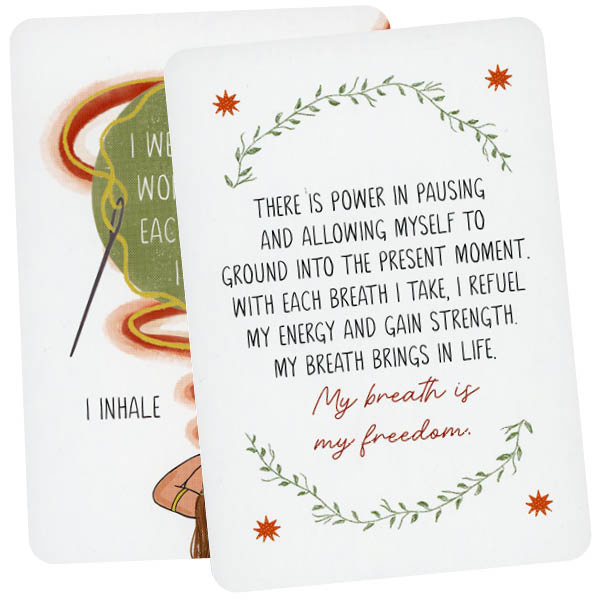 I WE
WO
EAC
I
I INHALE
THERE IS POWER IN PAUSING
AND ALLOWING MYSELF TO
GROUND INTO THE PRESENT MOMENT.
WITH EACH BREATH I TAKE, I REFUEL
MY ENERGY AND GAIN STRENGTH.
MY BREATH BRINGS IN LIFE.
My breath is
my freedom.